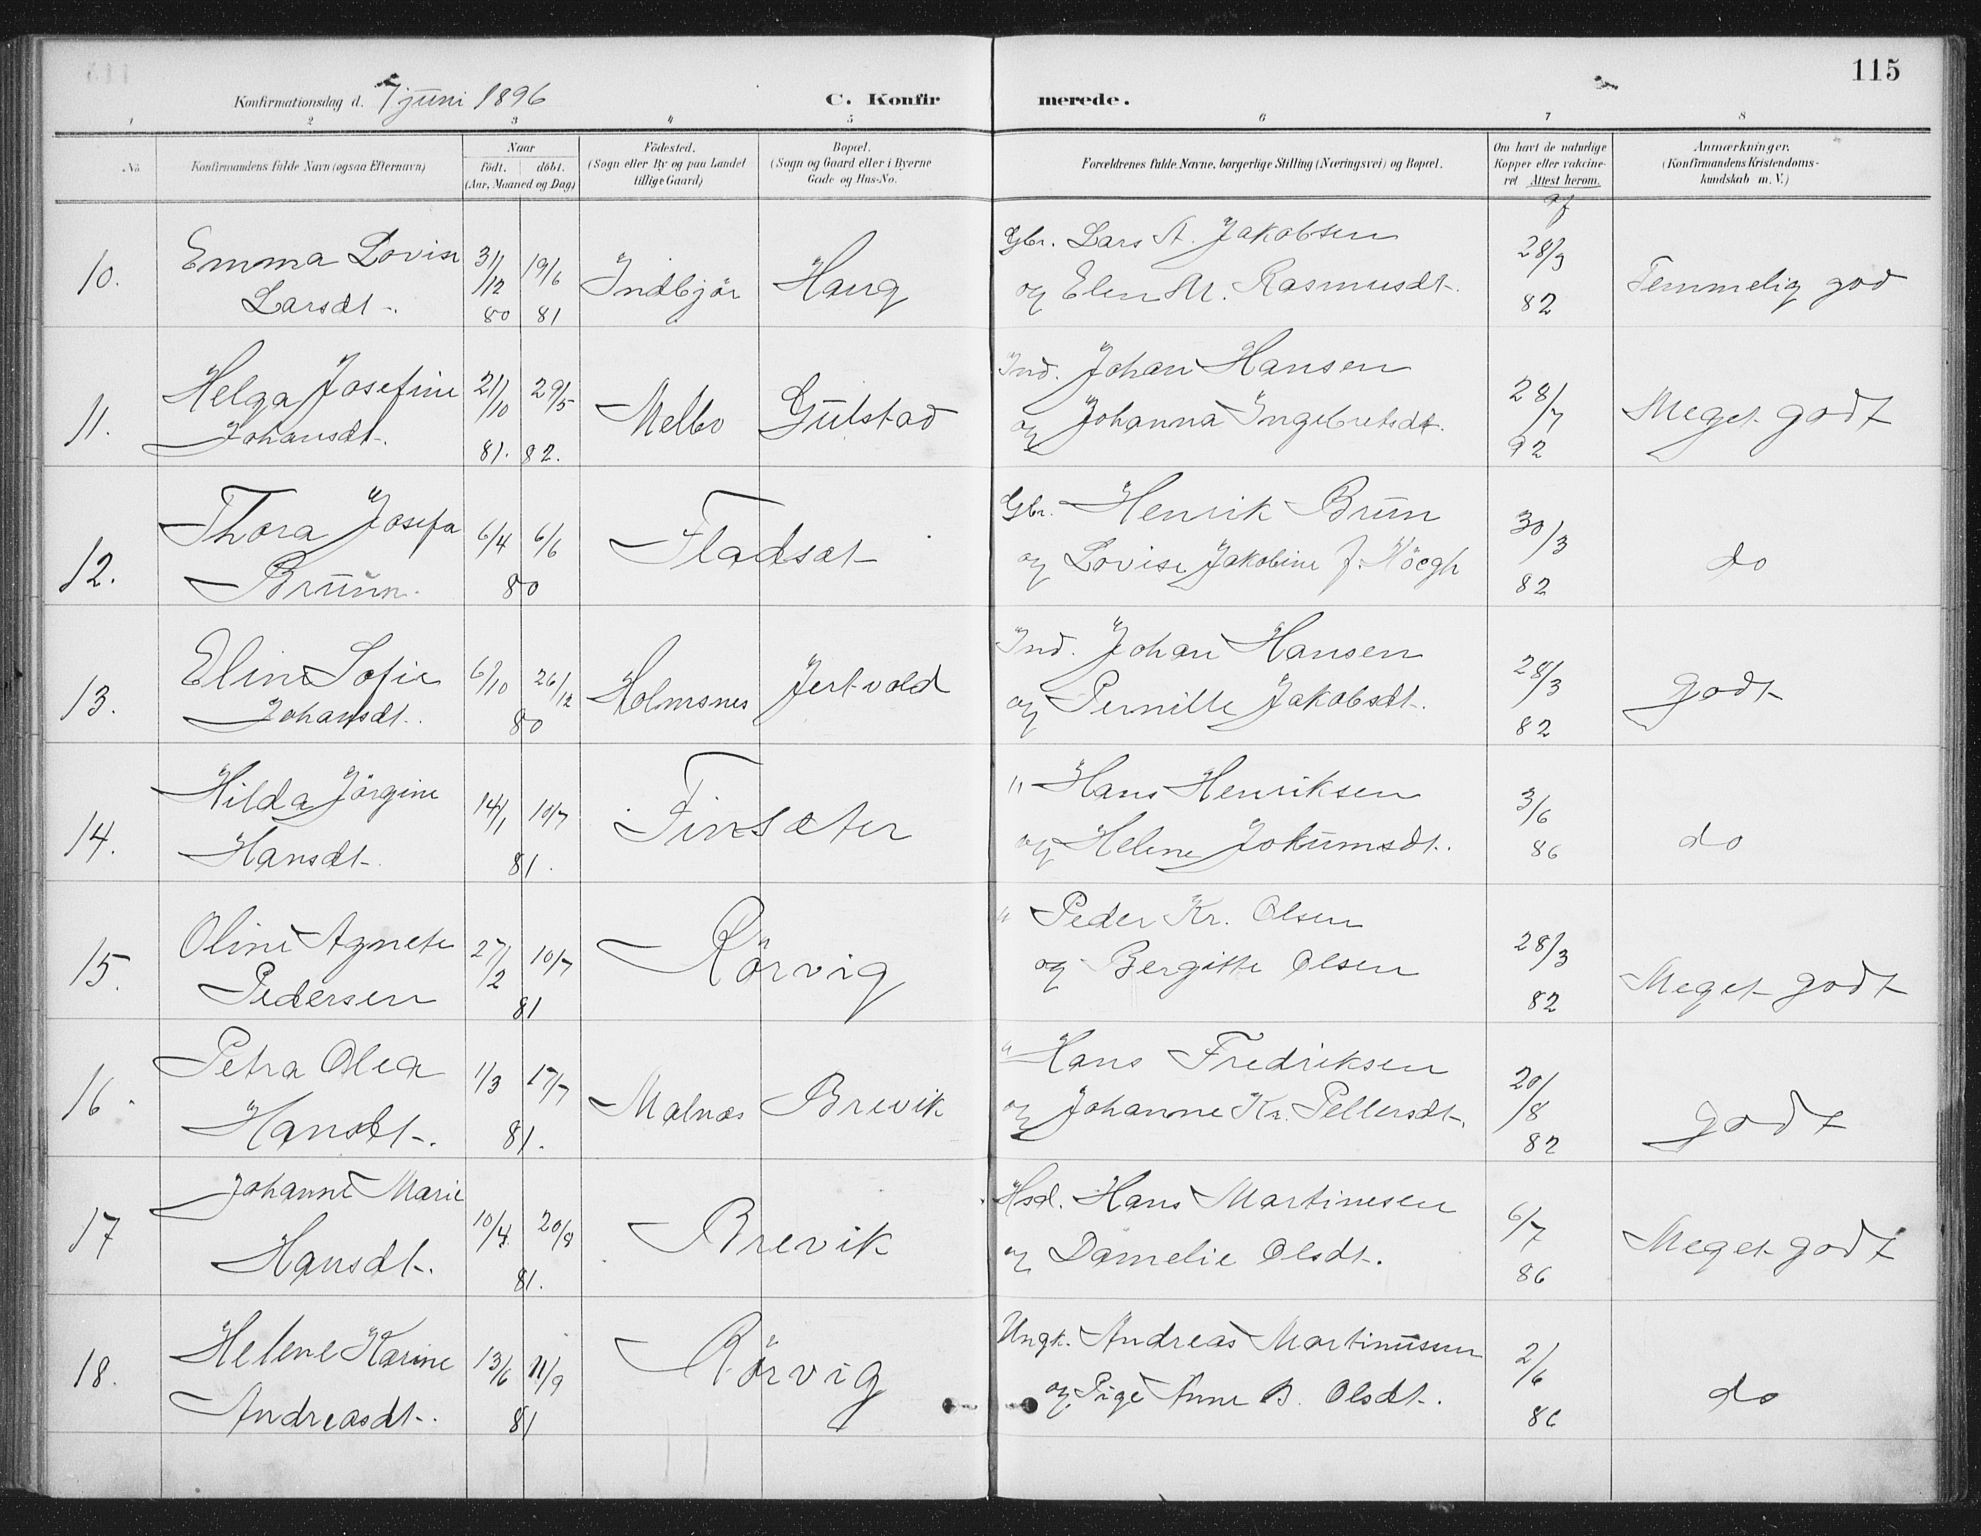 115
Konfirmationsdag d. 7 juni 1896
C. Konfirmerede.
1 2 3 4 5 6 7 8
No
Konfirmandens fulde Navn (ogsaa Efternavn)
Naar
født. døbt.
(Aar, Maaned og Dag)
Fødested.
(Sogn eller By og paa Landet
tillige Gaard)
Bopæl.
(Sogn og Gaard eller i Byerne
Gade og Hus-No.
Forældrenes fulde Navne, borgerlige Stilling (Næringsvei) og Bopæl.
Om havt de naturlige
Kopper eller vakcine-
ret Attest herom.
Anmærkninger.
(Konfirmandens Kristendoms-
kundskab m. V.)
af
10. Emma Lovise 31/12 19/6 Indbjör Haug Gbr. Lars A. Jakobsen 28/3 Temmelig god
Larsdt. 80 81 og Elen M. Rasmusdt. 82
11. Helga Josefine 21/10 29/5 Melbo Gulstad Ind. Johan Hansen 28/7 Meget godt
Johansdt. 81. 82. og Johanna Ingebretsdt. 92
12. Thora Josefa 6/4 6/6 Fladsæt Gbr. Henrik Bruun 30/3 do
Bruun. 80 og Lovise Jakobine f. Höegh 82
13. Eline Sofie 6/10 26/12 Holmsnes Jertvold Ind. Johan Hansen 28/3 godt
Johansdt. 80 og Pernille Jakobsdt. 82
14. Hilda Jörgine 14/1 10/7 Finsæter " Hans Henriksen 3/6 do
Hansdt. 81. og Helene Jokumsdt. 86
15. Oline Agnete 27/2 10/7 Rörvig " Peder Kr. Olsen 28/3 Meget godt
Pedersen 81 og Bergitte Olsen 82
16. Petra Olea 1/3 17/7 Malnæs Brevik " Hans Fredriksen 20/8 godt
Hansdt. 81. og Johanne Kr. Pellersdt. 82
17 Johanne Marie 10/4 20/8 Brevik Hsd. Hans Martinesen 6/7 Meget godt
Hansdt. 81. og Damelie Olsdt. 86
18. Helene Karine 13/6 11/9 Rörvig Ungk. Andreas Martinusen 2/6 do
Andreasdt. 81 og Pige Anne B. Olsdt. 86